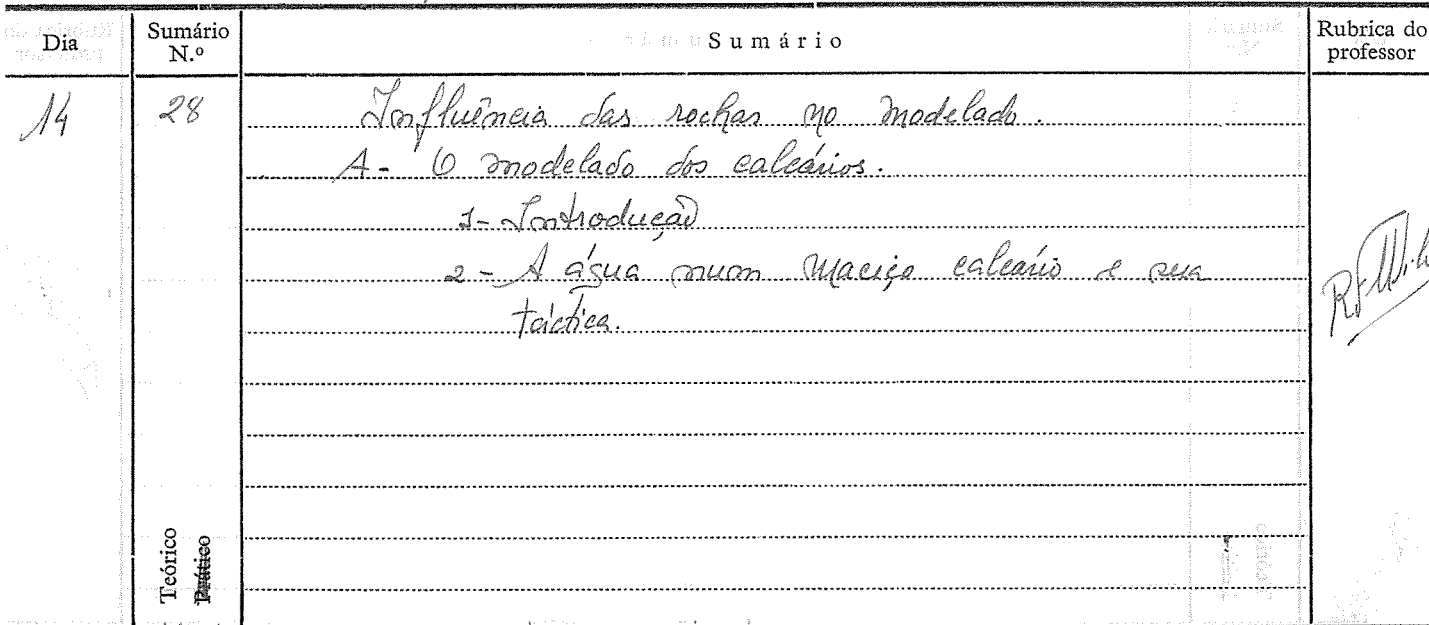 Dia
Sumário N.º
Sumário
Rubrica do professor
14
28
Influência das rochas no modelado.
A - O modelado dos calcários.
1 - Introdução
2 - A água num maciço calcário e sua
táctica.
Teórico
Prático